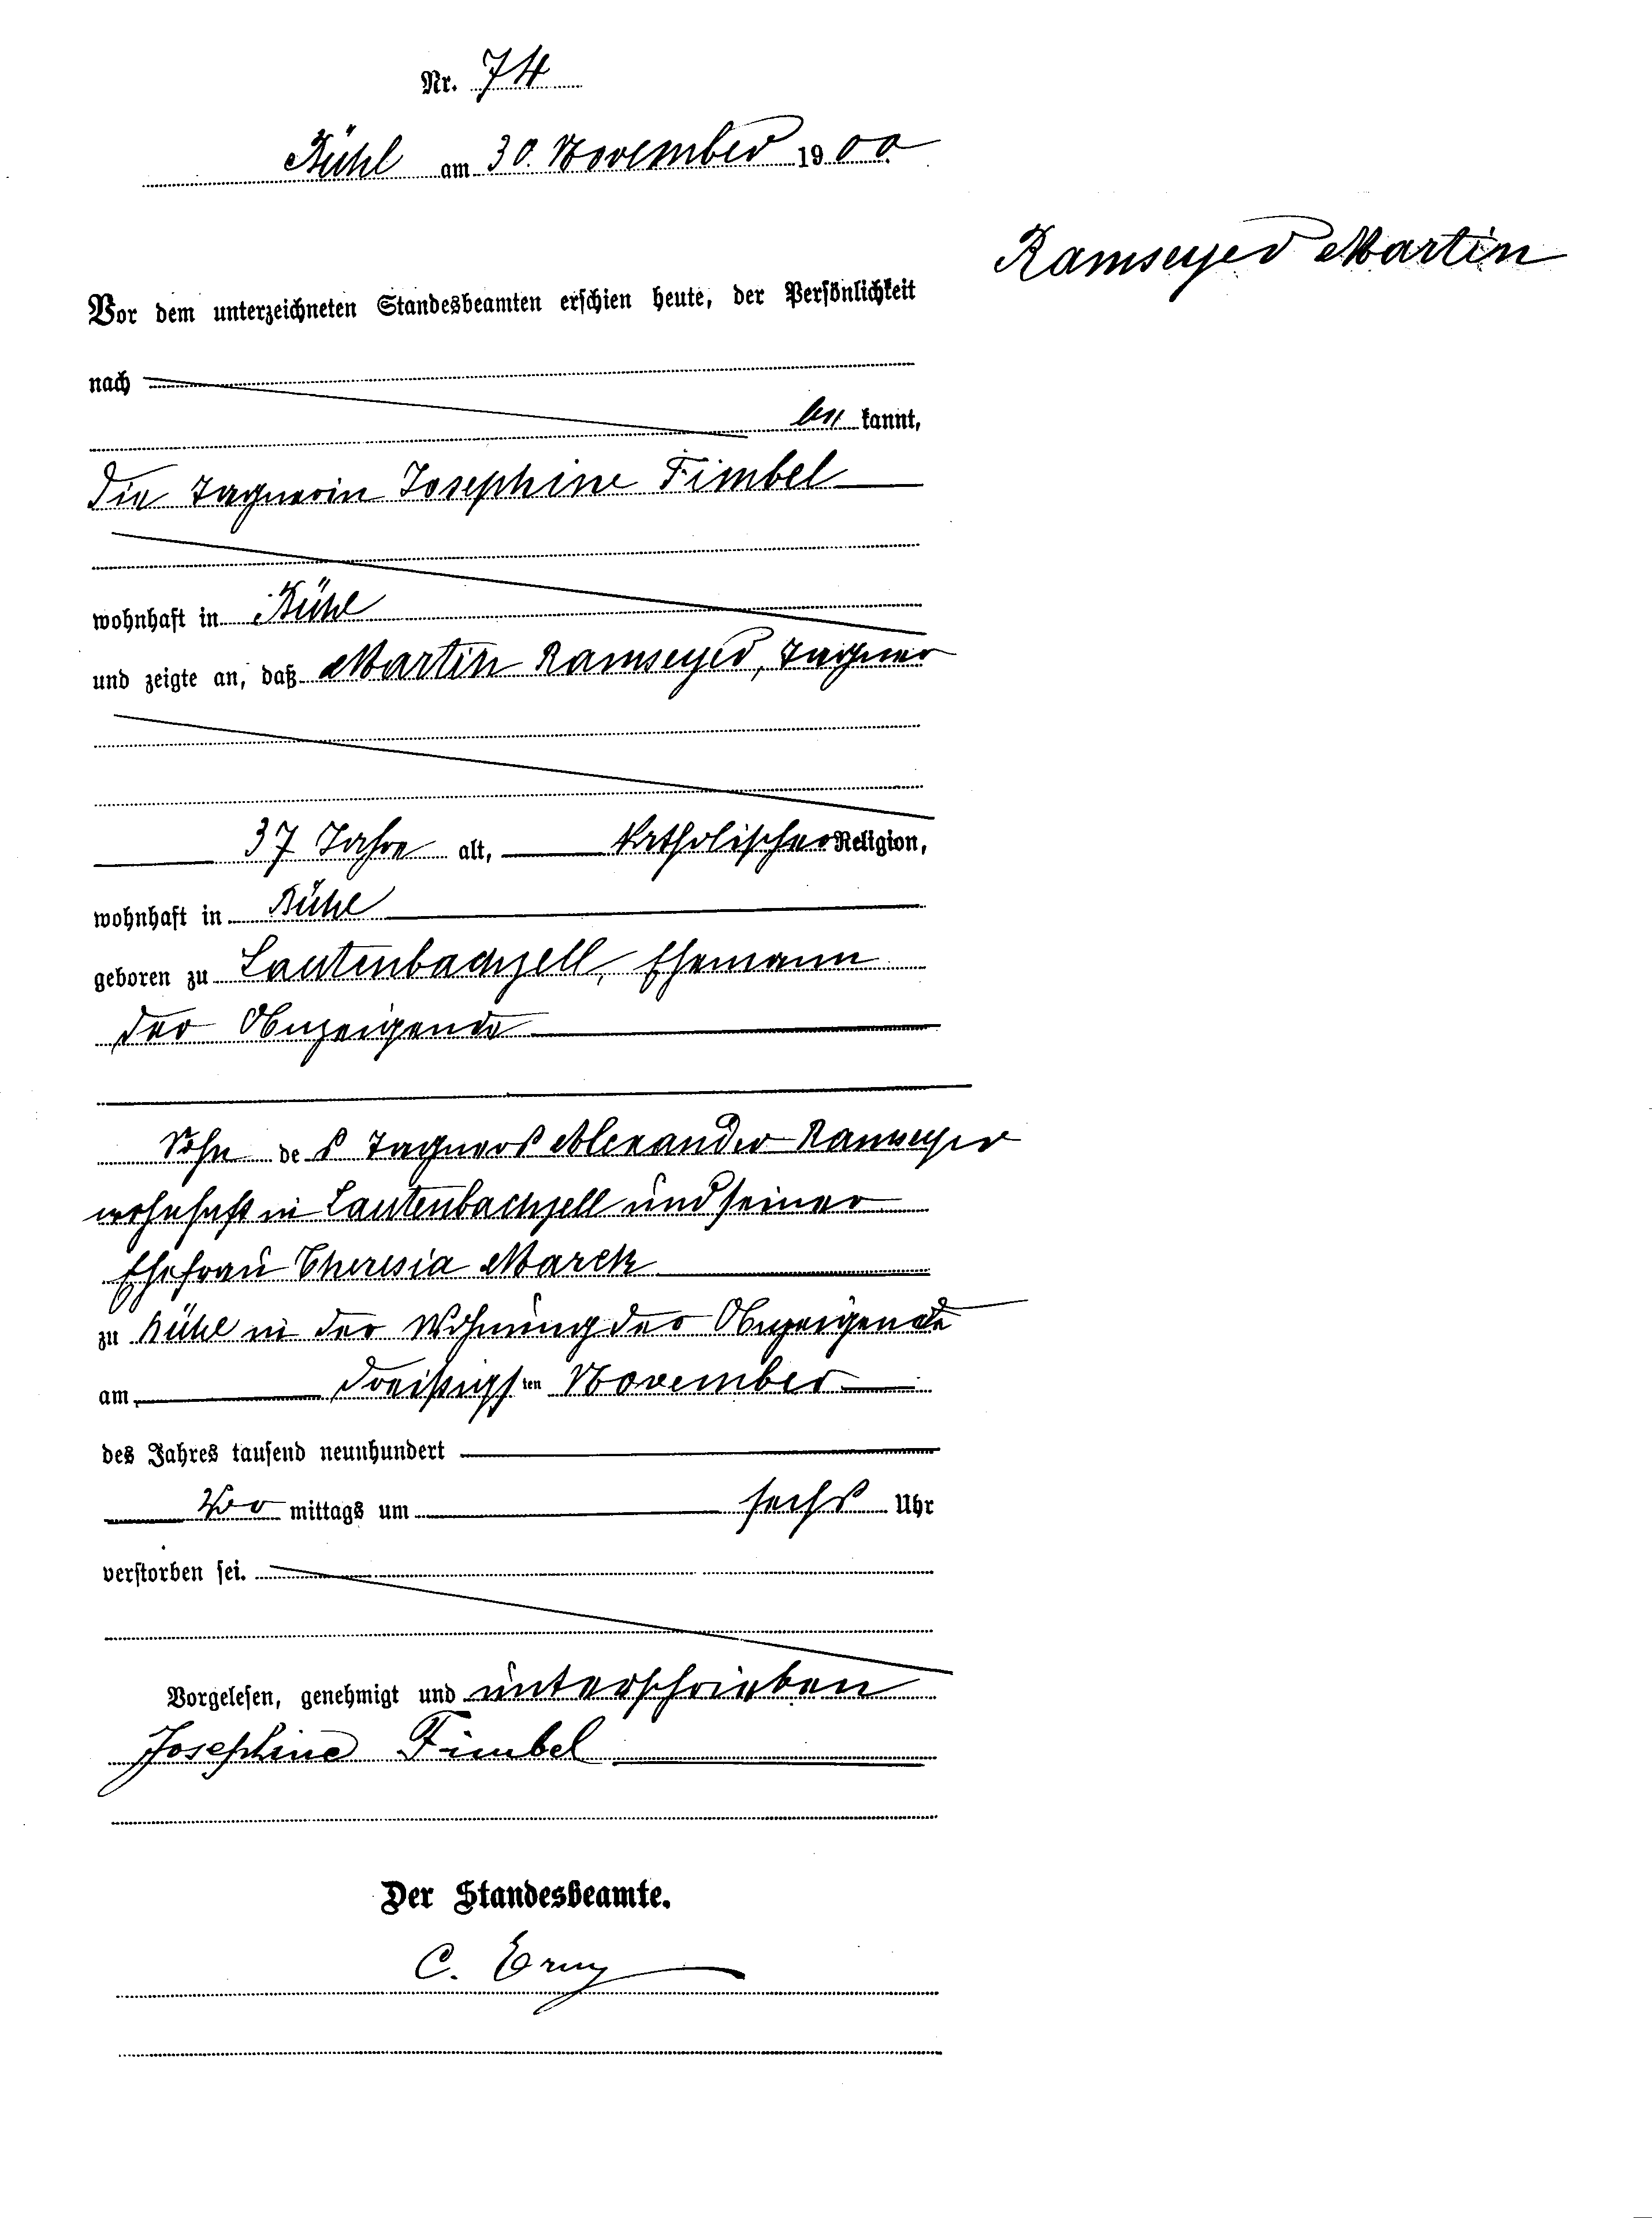 Nr. 74
Bühl am 30. November 1900
Ramseyer Martin
Vor dem unterzeichneten Standesbeamten erschien heute, der Persönlichkeit
nach
be kannt,
die Tagnerin Josephine Fimbel
wohnhaft in Bühl
und zeigte an, daß Martin Ramseyer, Tagner
37 Jahre alt, katholischer Religion,
wohnhaft in Bühl
geboren zu Lautenbachzell, Ehemann
der Anzeigende
Sohn des Tagners Alexander Ramseyer
wohnhaft in Lautenbachzell und seiner
Ehefrau Theresia Marck
zu Bühl in der Wohnung der Anzeigende
am dreißigsten November
des Jahres tausend neunhundert
Vor mittags um sechs Uhr
verstorben sei.
Vorgelesen, genehmigt und unterschrieben
Josephine Fimbel
Der Standesbeamte.
C. Erny